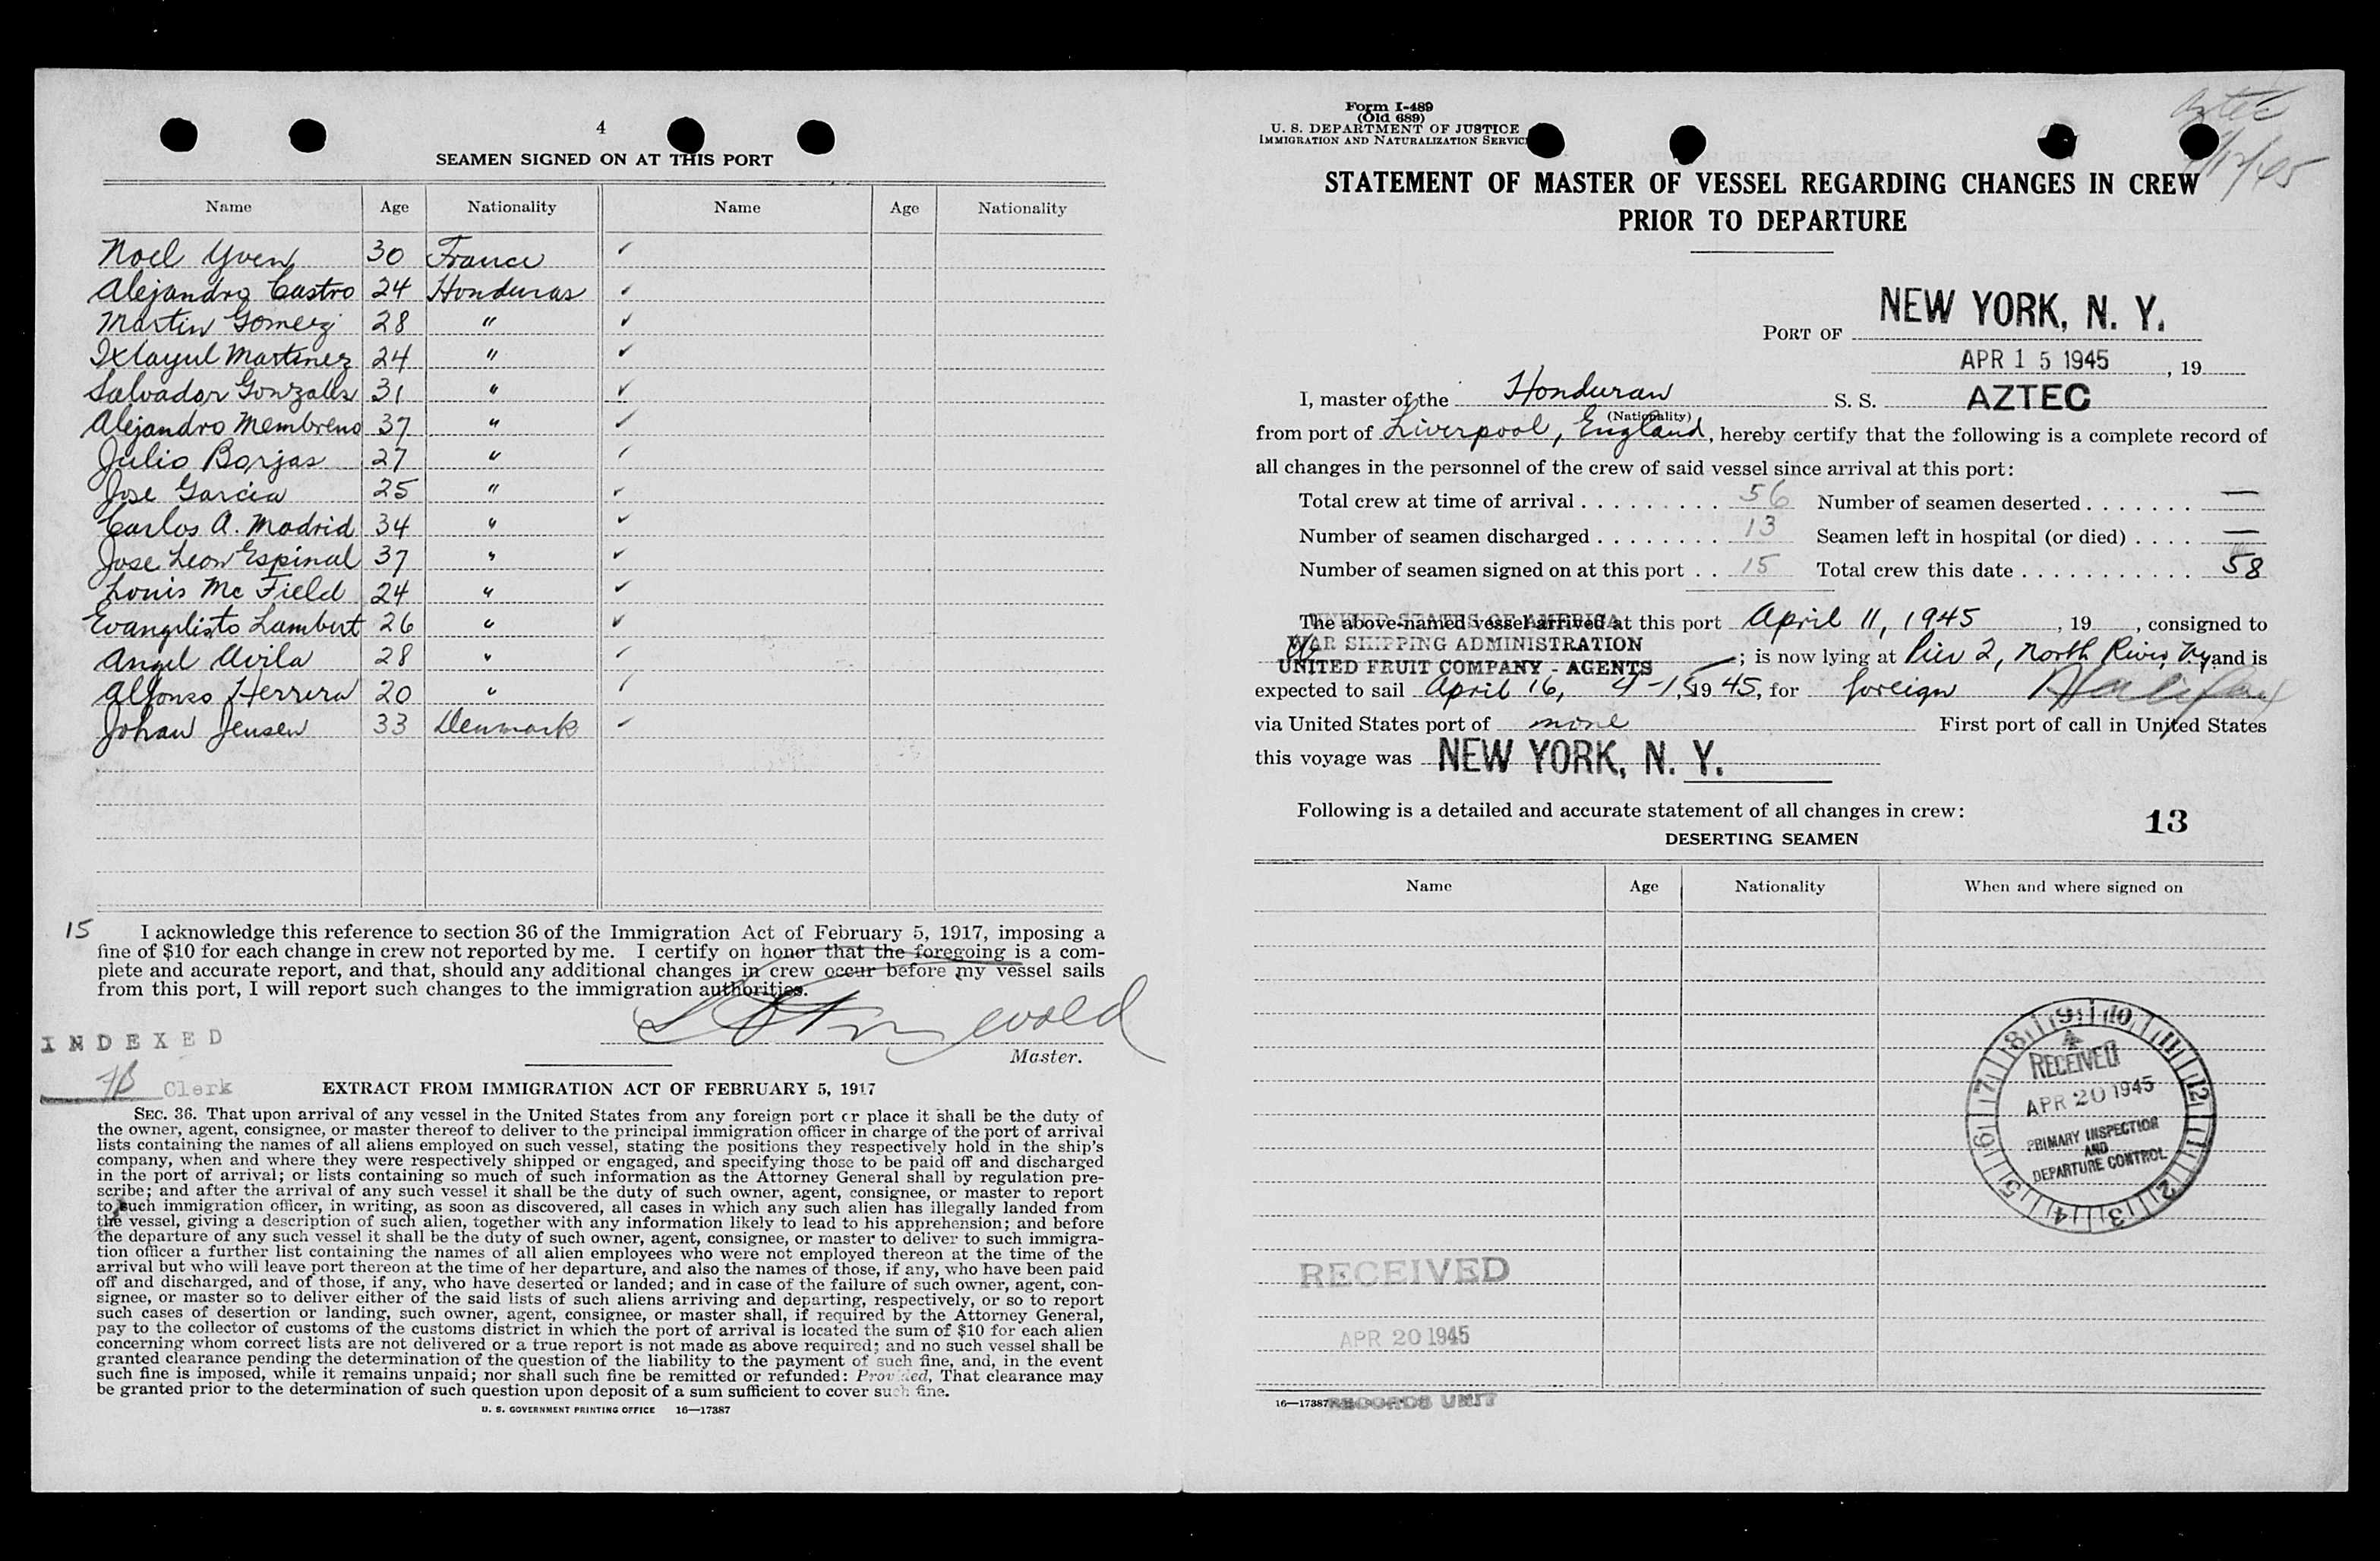 4
SEAMEN SIGNED ON AT THIS PORT
Name Age Nationality Name Age Nationality
Noel Yven 30 France ✓
Alejandro Castro 24 Honduras ✓
Martin Gomez 28 " ✓
Ixlayul Martinez 24 " ✓
Salvador Gonzales 31 " ✓
Alejandro Membreno 37 " ✓
Julio Borjas 27 " ✓
Jose Garcia 25 " ✓
Carlos A. Madrid 34 " ✓
Jose Leon Espinal 37 " ✓
Louis Mc Field 24 " ✓
Evangelisto Lambert 26 " ✓
Angel Avila 28 " ✓
Alfonso Herrera 20 " ✓
Johan Jensen 33 Denmark ✓
15 I acknowledge this reference to section 36 of the Immigration Act of February 5, 1917, imposing a
fine of $10 for each change in crew not reported by me. I certify on honor that the foregoing is a com-
plete and accurate report, and that, should any additional changes in crew occur before my vessel sails
from this port, I will report such changes to the immigration authorities.
Master.
INDEXED
Clerk
EXTRACT FROM IMMIGRATION ACT OF FEBRUARY 5, 1917
SEC. 36. That upon arrival of any vessel in the United States from any foreign port or place it shall be the duty of
the owner, agent, consignee, or master thereof to deliver to the principal immigration officer in charge of the port of arrival
lists containing the names of all aliens employed on such vessel, stating the positions they respectively hold in the ship's
company, when and where they were respectively shipped or engaged, and specifying those to be paid off and discharged
in the port of arrival; or lists containing so much of such information as the Attorney General shall by regulation pre-
scribe; and after the arrival of any such vessel it shall be the duty of such owner, agent, consignee, or master to report
to such immigration officer, in writing, as soon as discovered, all cases in which any such alien has illegally landed from
the vessel, giving a description of such alien, together with any information likely to lead to his apprehension; and before
the departure of any such vessel it shall be the duty of such owner, agent, consignee, or master to deliver to such immigra-
tion officer a further list containing the names of all alien employees who were not employed thereon at the time of the
arrival but who will leave port thereon at the time of her departure, and also the names of those, if any, who have been paid
off and discharged, and of those, if any, who have deserted or landed; and in case of the failure of such owner, agent, con-
signee, or master so to deliver either of the said lists of such aliens arriving and departing, respectively, or so to report
such cases of desertion or landing, such owner, agent, consignee, or master shall, if required by the Attorney General,
pay to the collector of customs of the customs district in which the port of arrival is located the sum of $10 for each alien
concerning whom correct lists are not delivered or a true report is not made as above required; and no such vessel shall be
granted clearance pending the determination of the question of the liability to the payment of such fine, and, in the event
such fine is imposed, while it remains unpaid; nor shall such fine be remitted or refunded: Provided, That clearance may
be granted prior to the determination of such question upon deposit of a sum sufficient to cover such fine.
U. S. GOVERNMENT PRINTING OFFICE 16—17387
Aztec
Form I-489
(Old 689)
U. S. DEPARTMENT OF JUSTICE
IMMIGRATION AND NATURALIZATION SERVICE
STATEMENT OF MASTER OF VESSEL REGARDING CHANGES IN CREW
PRIOR TO DEPARTURE
PORT OF NEW YORK, N. Y.
APR 15 1945, 19
I, master of the Honduran S. S. AZTEC
(Nationality)
from port of Liverpool, England, hereby certify that the following is a complete record of
all changes in the personnel of the crew of said vessel since arrival at this port:
Total crew at time of arrival . . . . . . . . . 56 Number of seamen deserted . . . . . . . —
Number of seamen discharged . . . . . . . . 13 Seamen left in hospital (or died) . . . . —
Number of seamen signed on at this port . . 15 Total crew this date . . . . . . . . . . . . 58
UNITED STATES OF AMERICA
The above-named vessel arrived at this port April 11, 1945, 19 , consigned to
WAR SHIPPING ADMINISTRATION
UNITED FRUIT COMPANY - AGENTS; is now lying at Pier 2, North River, Ny, and is
expected to sail April 16, 4-15, 1945, for foreign Halifax
via United States port of none First port of call in United States
this voyage was NEW YORK, N. Y.
Following is a detailed and accurate statement of all changes in crew:
13
DESERTING SEAMEN
Name Age Nationality When and where signed on
9 10 11 12 1 2 3 4 5 6 7 8
RECEIVED
APR 20 1945
PRIMARY INSPECTION
AND
DEPARTURE CONTROL
RECEIVED
APR 20 1945
RECORDS UNIT
16—17387